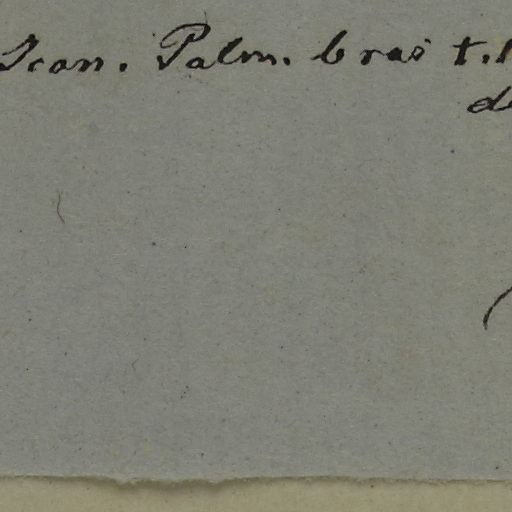 Icon. Palm. bras t.
de